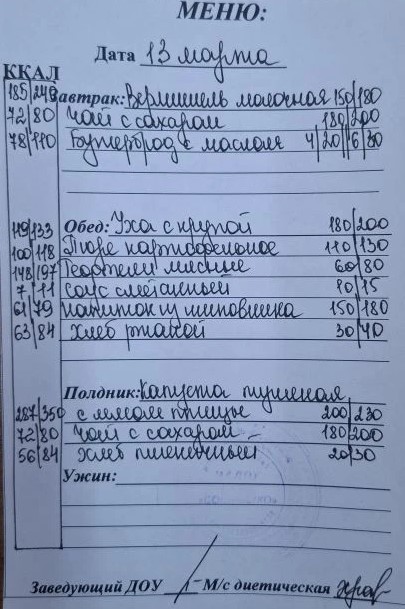 МЕНЮ:
Дата 13 марта
ККАЛ
185/240 Завтрак: Вермишель молочная 150/180
72/80 Чай с сахаром 180/200
78/110 Бутерброд с маслом 4/20//6/30
119/133 Обед: Уха с крупой 180/200
100/118 Пюре картофельное 110/130
148/197 Тефтели мясные 60/80
7/11 Соус сметанный 10/15
61/79 Напиток из шиповника 150/180
63/84 Хлеб ржаной 30/40
Полдник: Капуста тушеная
287/350 с мясом птицы 200/230
72/80 Чай с сахаром 180/200
56/84 Хлеб пшеничный 20/30
Ужин:
Заведующий ДОУ М/с диетическая